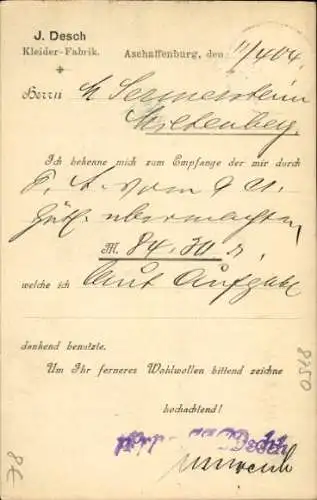 J. Desch
Kleider-Fabrik.
Aschaffenburg, den 11/4 04.
Herrn M Sermersheim
Miltenberg.
Ich bekenne mich zum Empfange der mir durch
P. A. vom 9 ct.
gütl. übermachten
M. 84.30 S.
welche ich laut Aufgabe
dankend benutzte.
Um Ihr ferneres Wohlwollen bittend zeichne
hochachtend!
Desch
8250
8€